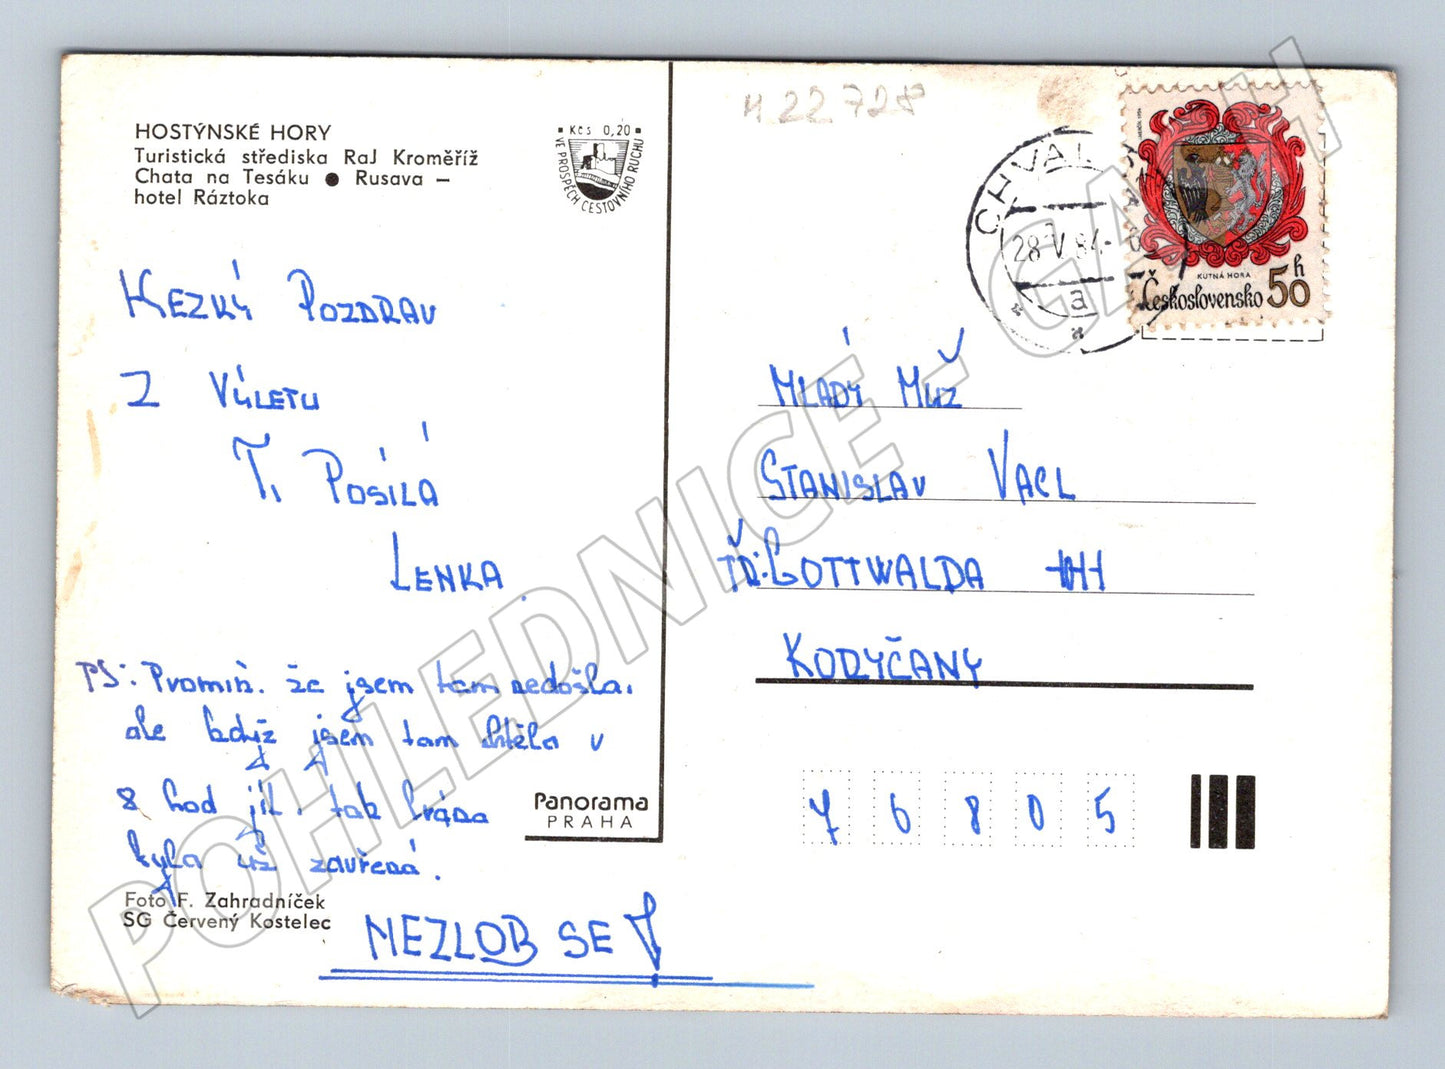 HOSTÝNSKÉ HORY
Turistická střediska RaJ Kroměříž
Chata na Tesáku ● Rusava –
hotel Ráztoka
Kčs 0,20
VE PROSPĚCH CESTOVNÍHO RUCHU
HEZKÝ POZDRAV
Z VÝLETU
T. POSÍLÁ
LENKA.
PS: Promiň. že jsem tam nedošla.
ale když jsem tam chtěla v
8 hod jít. tak brána
byla už zavřená.
NEZLOB SE!
Foto F. Zahradníček
SG Červený Kostelec
Panorama
PRAHA
H 22728
CHVAL
28.V.84
a
KUTNÁ HORA
Československo 50 h
MLADÝ MUŽ
STANISLAV VACL
TŘ. GOTTWALDA
KORYČANY
76805
POHLEDNICE - GASH